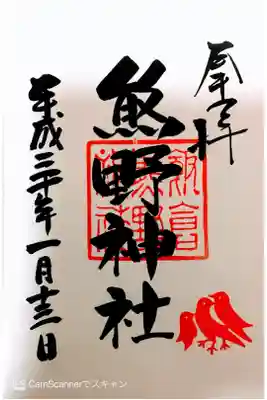 奉拝
飯倉
熊野神社
平成三十年一月十三日
CamScannerでスキャン